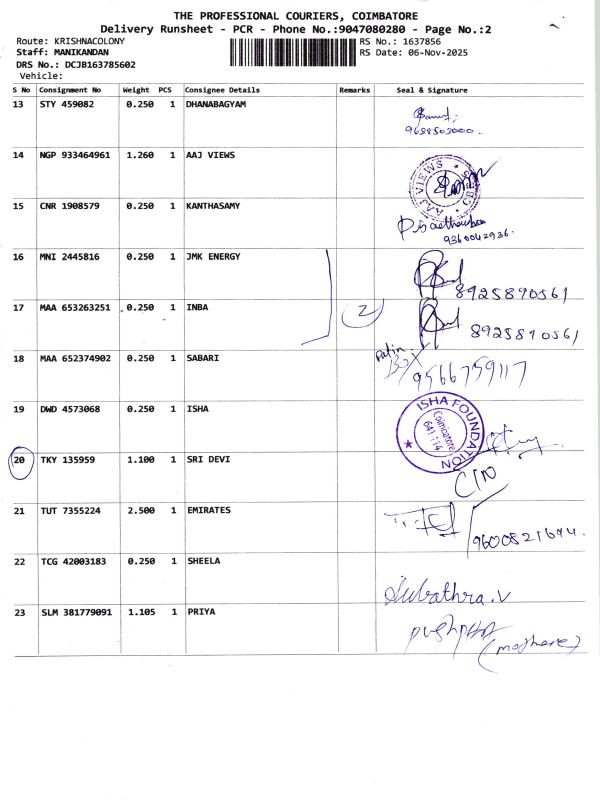 THE PROFESSIONAL COURIERS, COIMBATORE
Delivery Runsheet - PCR - Phone No.:9047080280 - Page No.:2
Route: KRISHNACOLONY RS No.: 1637856
Staff: MANIKANDAN RS Date: 06-Nov-2025
DRS No.: DCJB163785602
Vehicle:
S No Consignment No Weight PCS Consignee Details Remarks Seal & Signature
13 STY 459082 0.250 1 DHANABAGYAM
14 NGP 933464961 1.260 1 AAJ VIEWS
AAJ VIEWS
15 CNR 1908579 0.250 1 KANTHASAMY
9360042936.
16 MNI 2445816 0.250 1 JMK ENERGY
8925890561
17 MAA 653263251 0.250 1 INBA 2
8925890561
18 MAA 652374902 0.250 1 SABARI
9566759117
19 DWD 4573068 0.250 1 ISHA
ISHA FOUNDATION
Coimbatore
641 114
20 TKY 135959 1.100 1 SRI DEVI
21 TUT 7355224 2.500 1 EMIRATES
22 TCG 42003183 0.250 1 SHEELA
Subathra.V
23 SLM 381779091 1.105 1 PRIYA